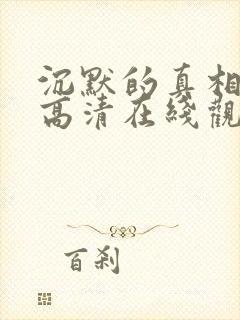 沉默的真相
高清在綫觀
百刹